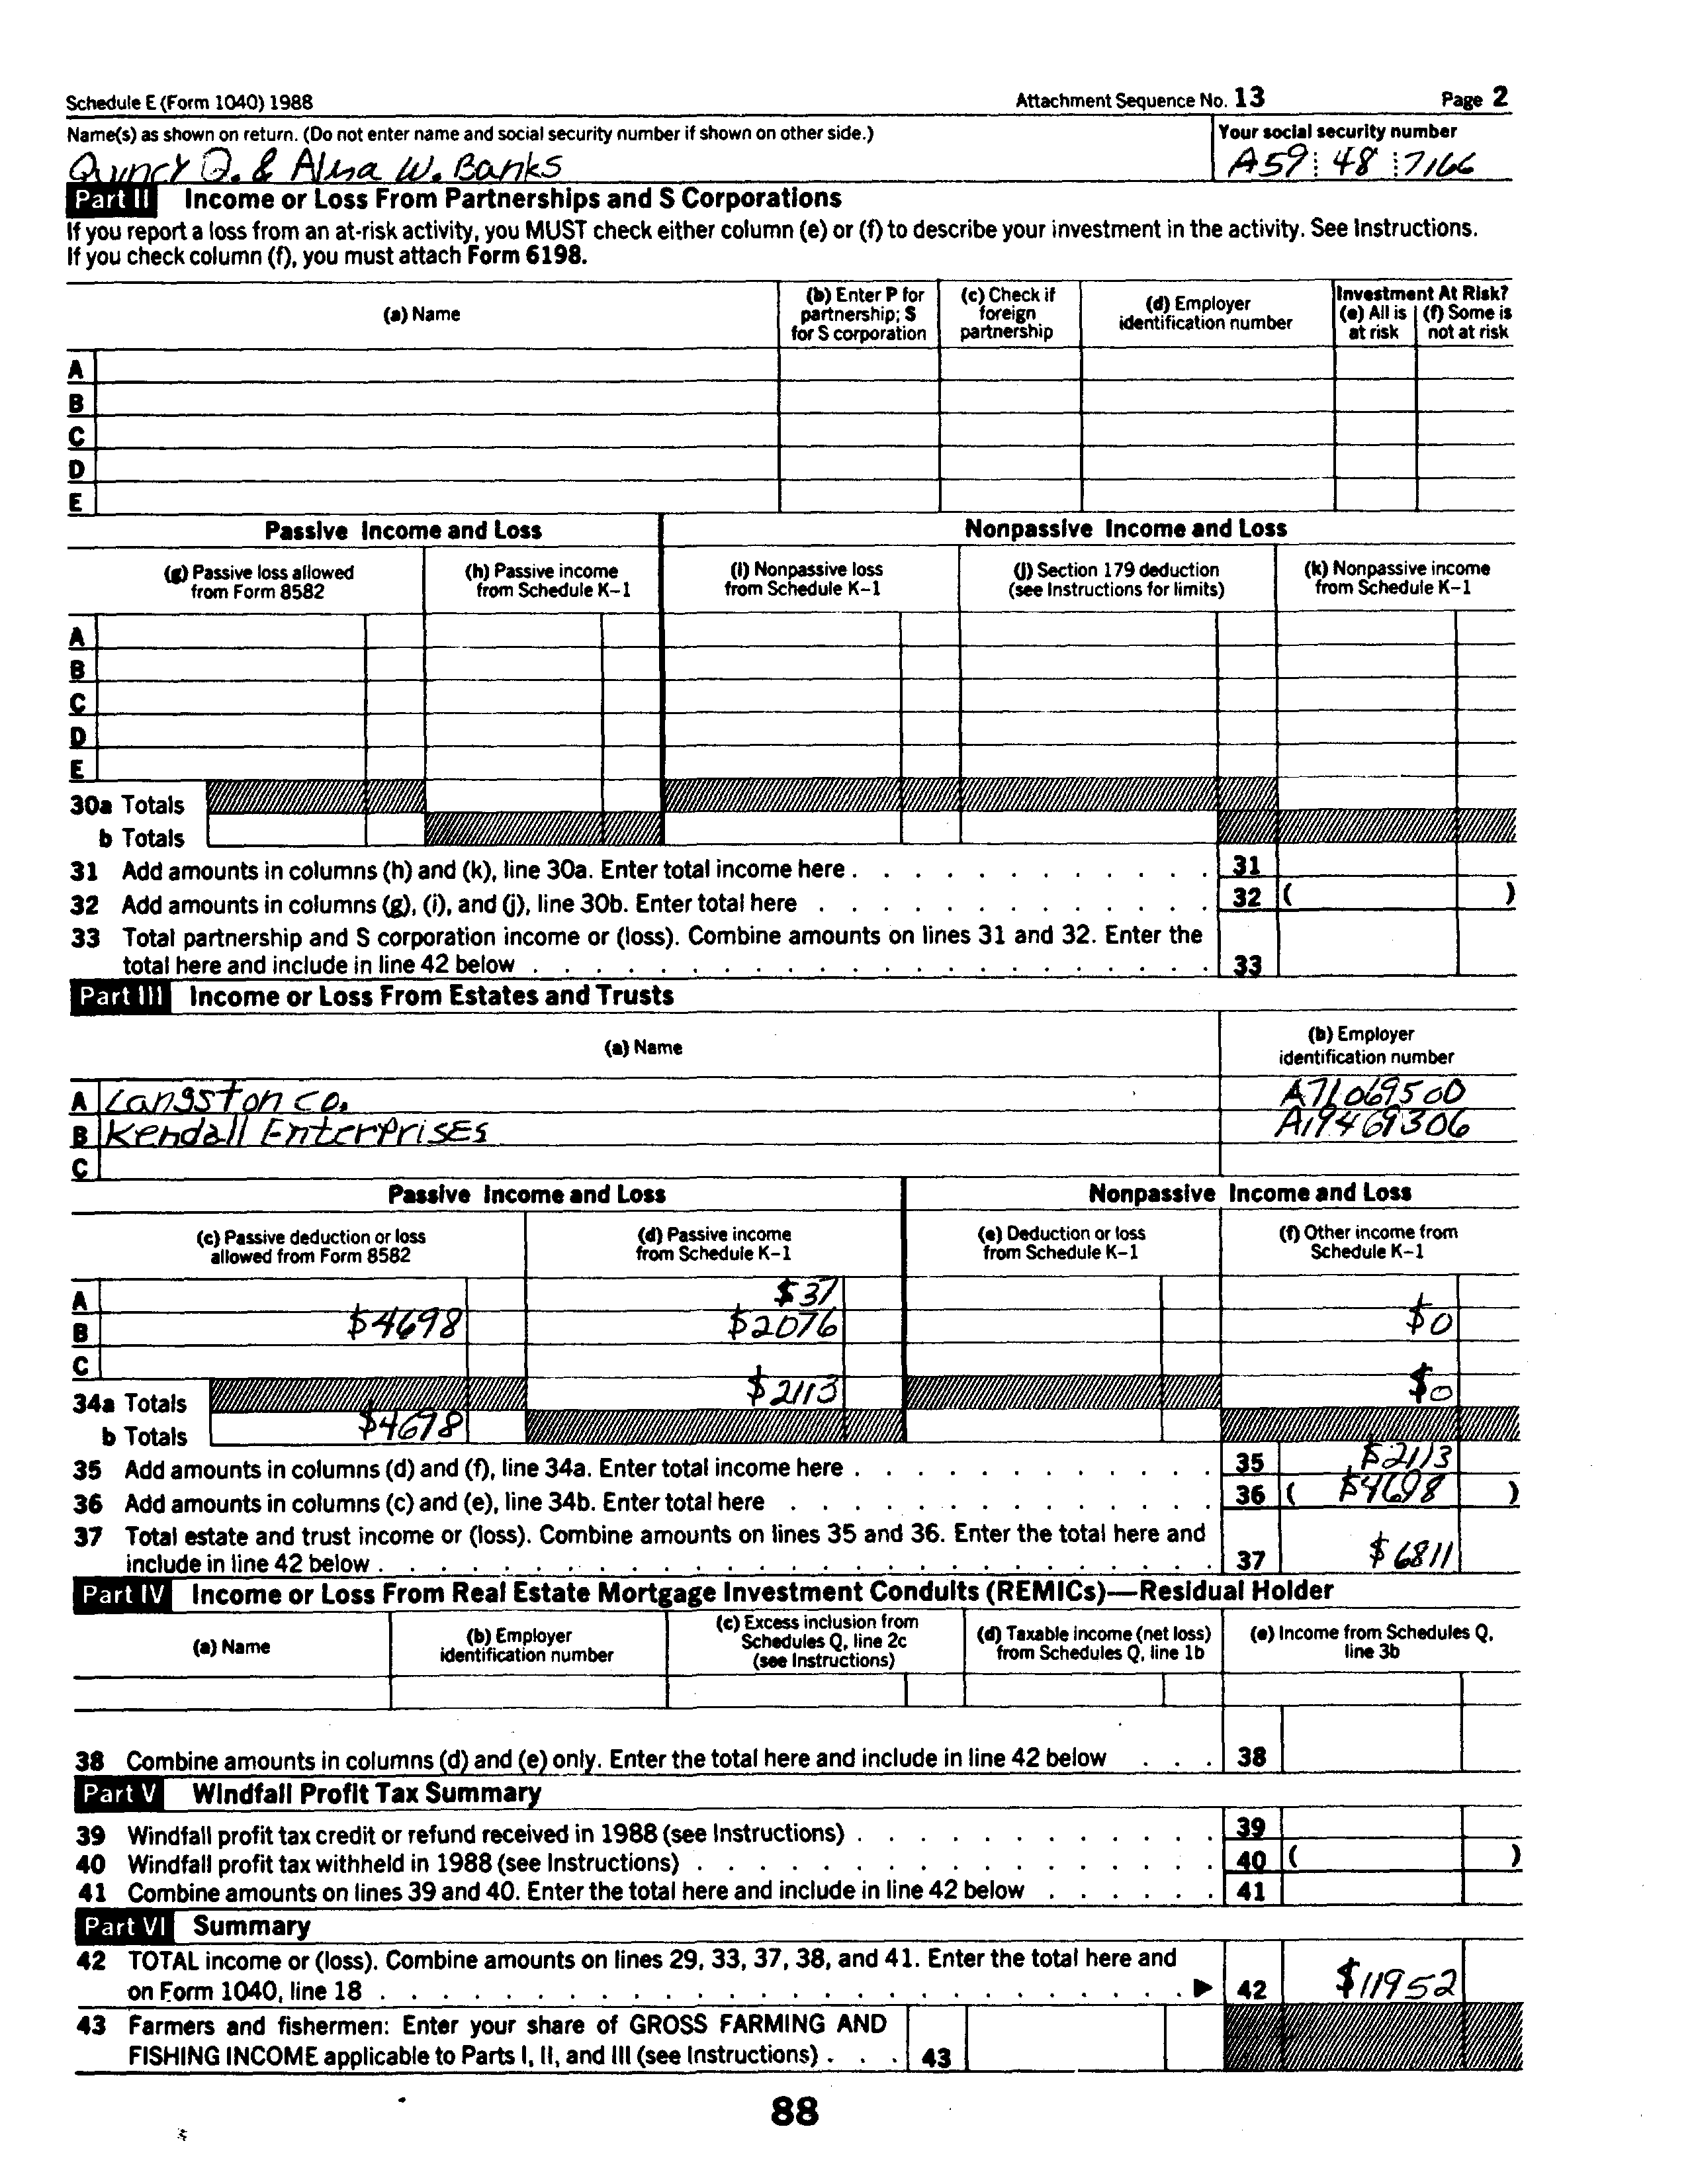 Schedule E (Form 1040) 1988 Attachment Sequence No. 13 Page 2
Name(s) as shown on return. (Do not enter name and social security number if shown on other side.) Your social security number
Quincy Q. & Alma W. Banks A59 48 7166
Part II Income or Loss From Partnerships and S Corporations
If you report a loss from an at-risk activity, you MUST check either column (e) or (f) to describe your investment in the activity. See Instructions.
If you check column (f), you must attach Form 6198.
(a) Name (b) Enter P for partnership; S for S corporation (c) Check if foreign partnership (d) Employer identification number Investment At Risk? (e) All is at risk (f) Some is not at risk
A
B
C
D
E
Passive Income and Loss Nonpassive Income and Loss
(g) Passive loss allowed from Form 8582 (h) Passive income from Schedule K-1 (i) Nonpassive loss from Schedule K-1 (j) Section 179 deduction (see Instructions for limits) (k) Nonpassive income from Schedule K-1
A
B
C
D
E
30a Totals
b Totals
31 Add amounts in columns (h) and (k), line 30a. Enter total income here . . . 31
32 Add amounts in columns (g), (i), and (j), line 30b. Enter total here . . . 32 ( )
33 Total partnership and S corporation income or (loss). Combine amounts on lines 31 and 32. Enter the
total here and include in line 42 below . . . 33
Part III Income or Loss From Estates and Trusts
(a) Name (b) Employer identification number
A Langston co. A71069500
B Kendall Enterprises A19469306
C
Passive Income and Loss Nonpassive Income and Loss
(c) Passive deduction or loss allowed from Form 8582 (d) Passive income from Schedule K-1 (e) Deduction or loss from Schedule K-1 (f) Other income from Schedule K-1
A $37
B $4698 $2076 $0
C
34a Totals $2113 $0
b Totals $4698
35 Add amounts in columns (d) and (f), line 34a. Enter total income here . . . 35 $2113
36 Add amounts in columns (c) and (e), line 34b. Enter total here . . . 36 ( $4698 )
37 Total estate and trust income or (loss). Combine amounts on lines 35 and 36. Enter the total here and
include in line 42 below . . . 37 $6811
Part IV Income or Loss From Real Estate Mortgage Investment Conduits (REMICs)—Residual Holder
(a) Name (b) Employer identification number (c) Excess inclusion from Schedules Q, line 2c (see Instructions) (d) Taxable income (net loss) from Schedules Q, line 1b (e) Income from Schedules Q, line 3b
38 Combine amounts in columns (d) and (e) only. Enter the total here and include in line 42 below . . . 38
Part V Windfall Profit Tax Summary
39 Windfall profit tax credit or refund received in 1988 (see Instructions) . . . 39
40 Windfall profit tax withheld in 1988 (see Instructions) . . . 40 ( )
41 Combine amounts on lines 39 and 40. Enter the total here and include in line 42 below . . . 41
Part VI Summary
42 TOTAL income or (loss). Combine amounts on lines 29, 33, 37, 38, and 41. Enter the total here and
on Form 1040, line 18 . . . ▶ 42 $11952
43 Farmers and fishermen: Enter your share of GROSS FARMING AND
FISHING INCOME applicable to Parts I, II, and III (see Instructions) . . . 43
88